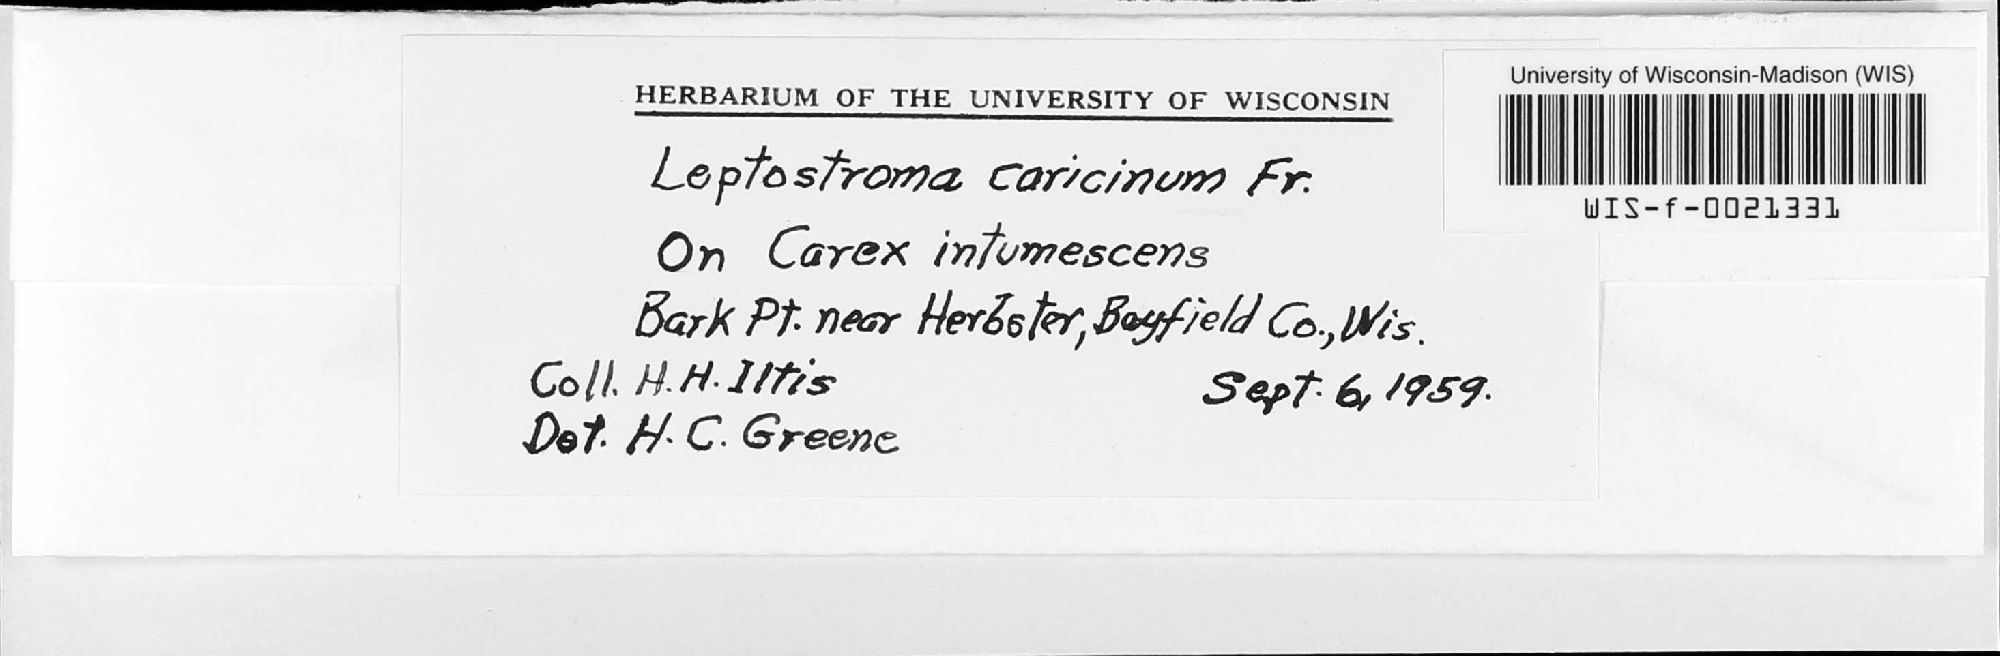 HERBARIUM OF THE UNIVERSITY OF WISCONSIN
Leptostroma caricinum Fr.
On Carex intumescens
Bark Pt. near Herbster, Bayfield Co., Wis.
Coll. H. H. Iltis
Sept. 6, 1959.
Det. H. C. Greene
University of Wisconsin-Madison (WIS)
WIS-f-0021331